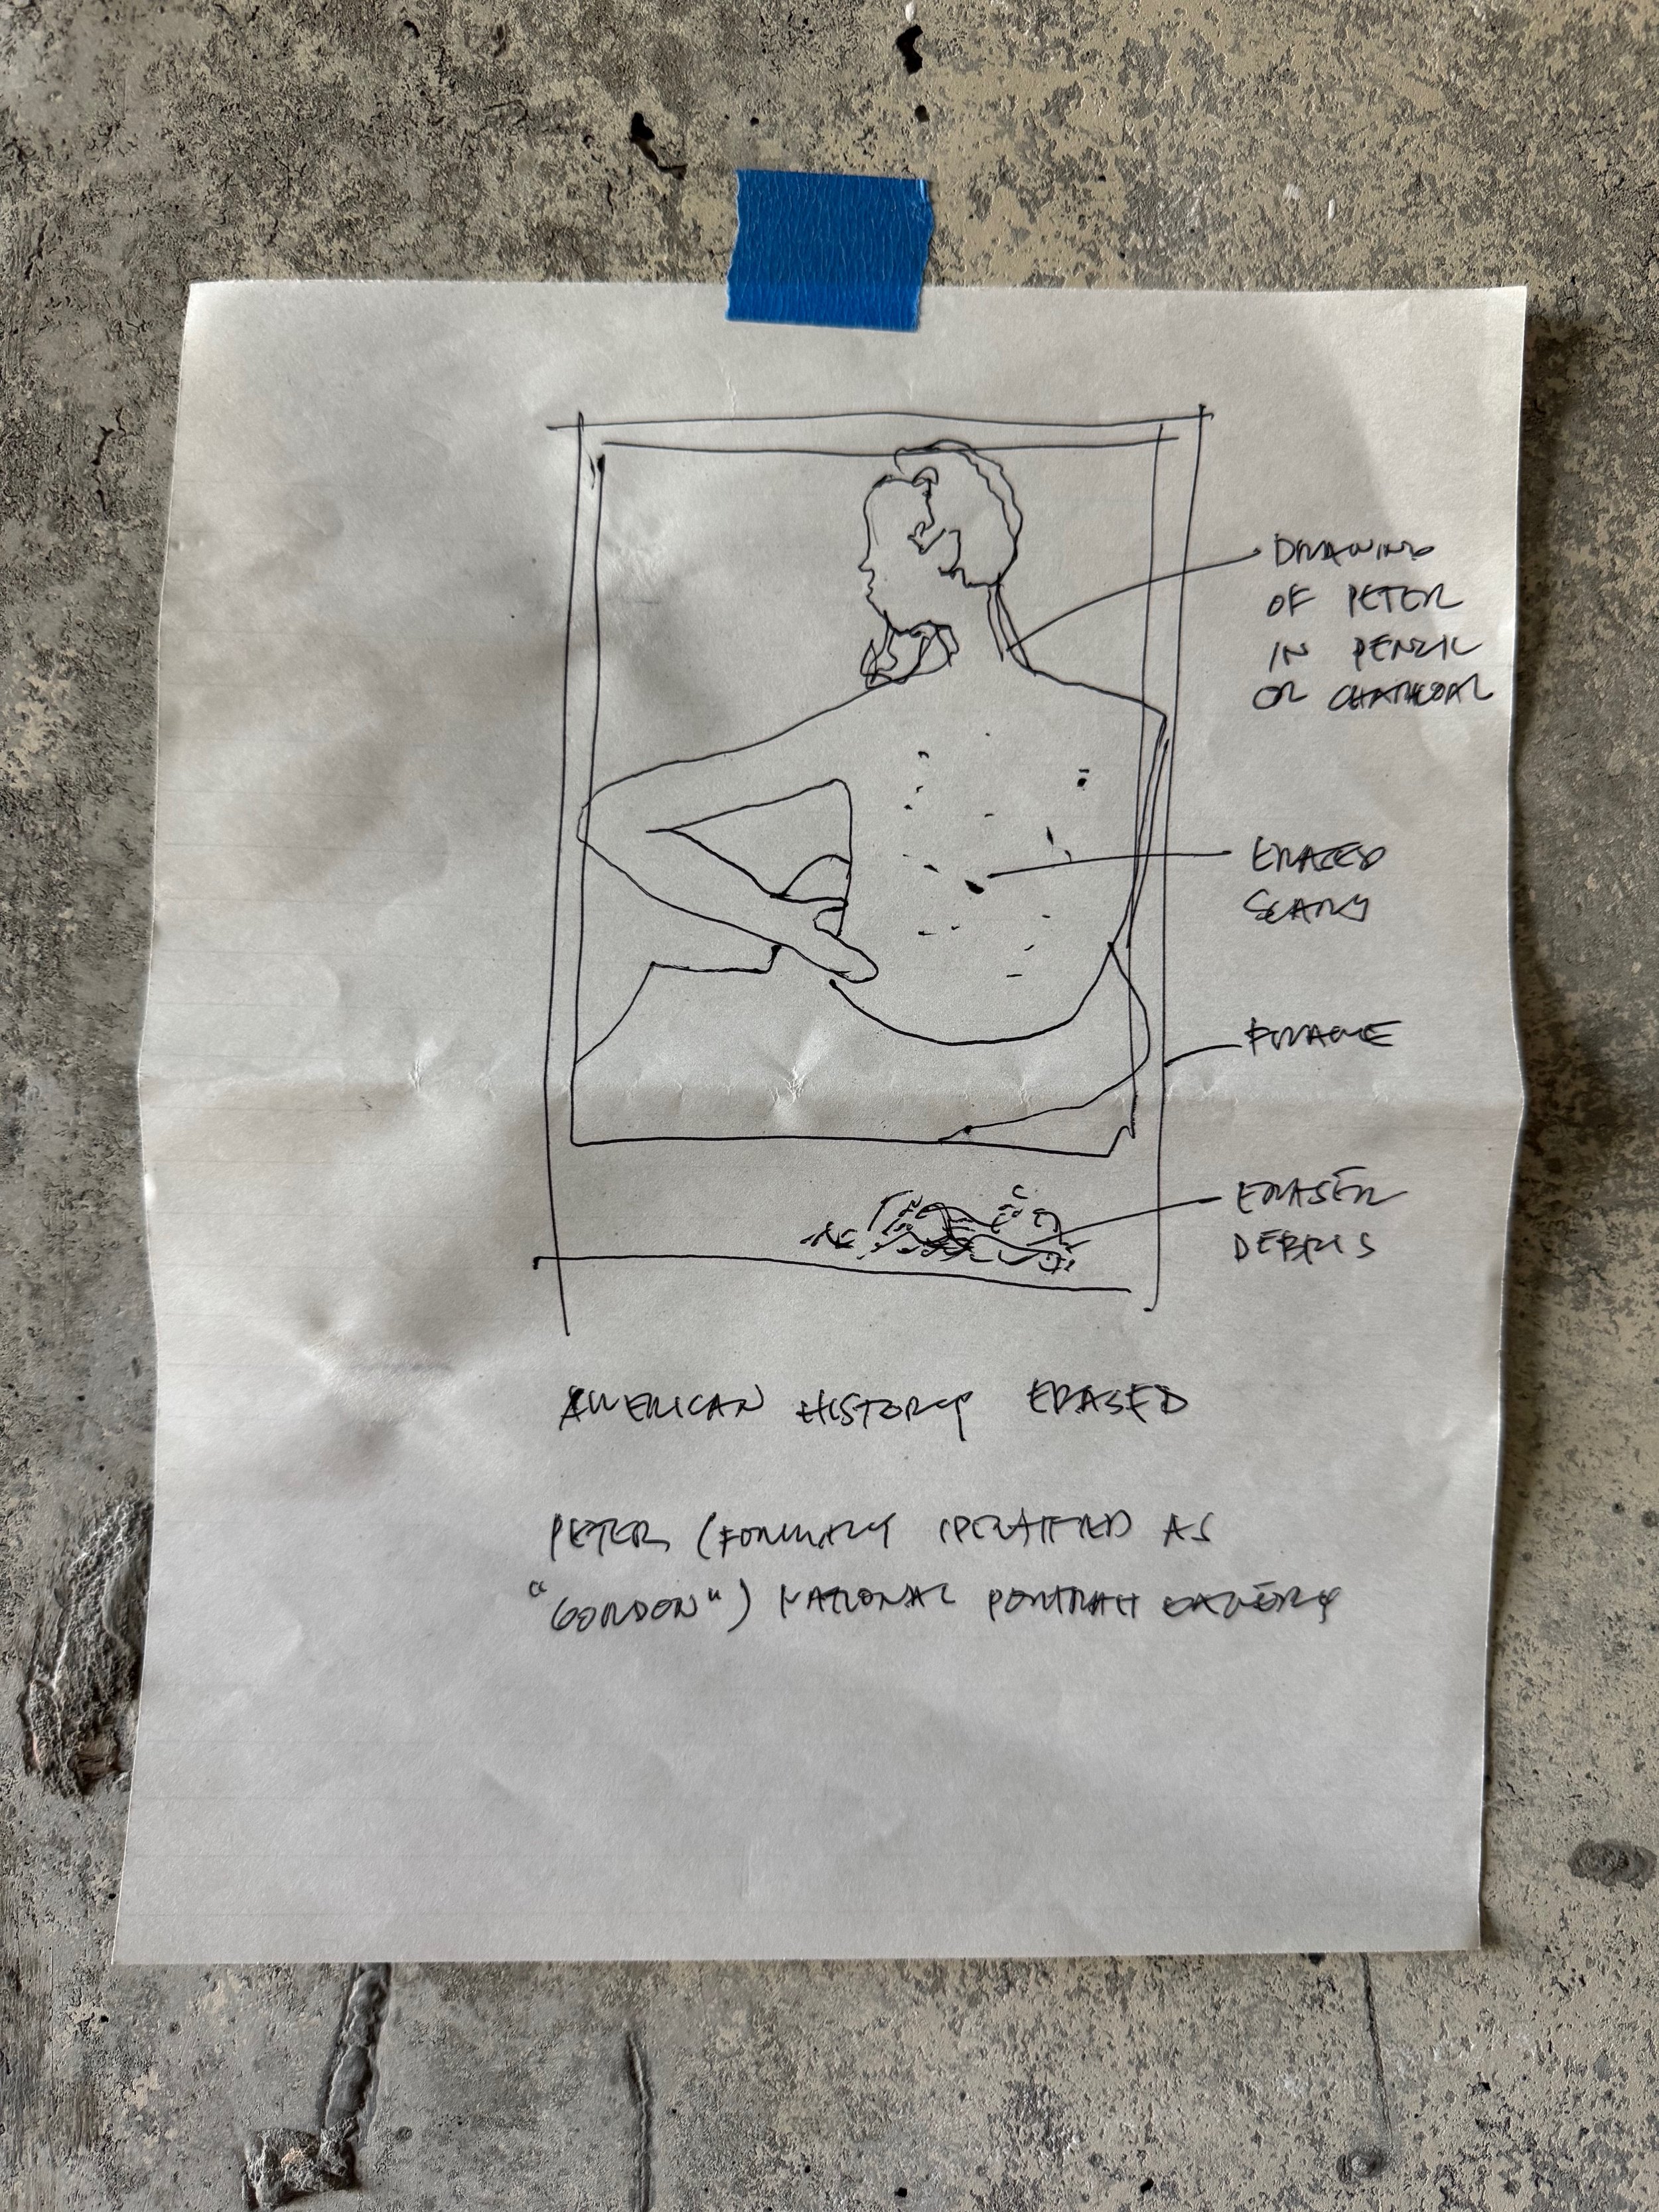 DRAWING
OF PETER
IN PENCIL
OR CHARCOAL
ERASED
SCARS
FRAME
ERASER
DEBRIS
AMERICAN HISTORY ERASED
PETER (FORMERLY IDENTIFIED AS
"GORDON") NATIONAL PORTRAIT GALLERY